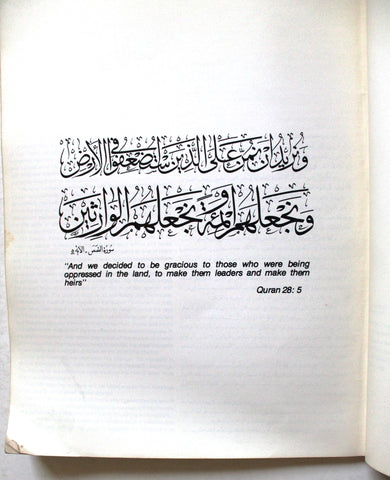 ونريد أن نمن على الذين استضعفوا في الأرض
ونجعلهم أئمة ونجعلهم الوارثين
سورة القصص - الآية ٥
"And we decided to be gracious to those who were being
oppressed in the land, to make them leaders and make them
heirs"
Quran 28: 5